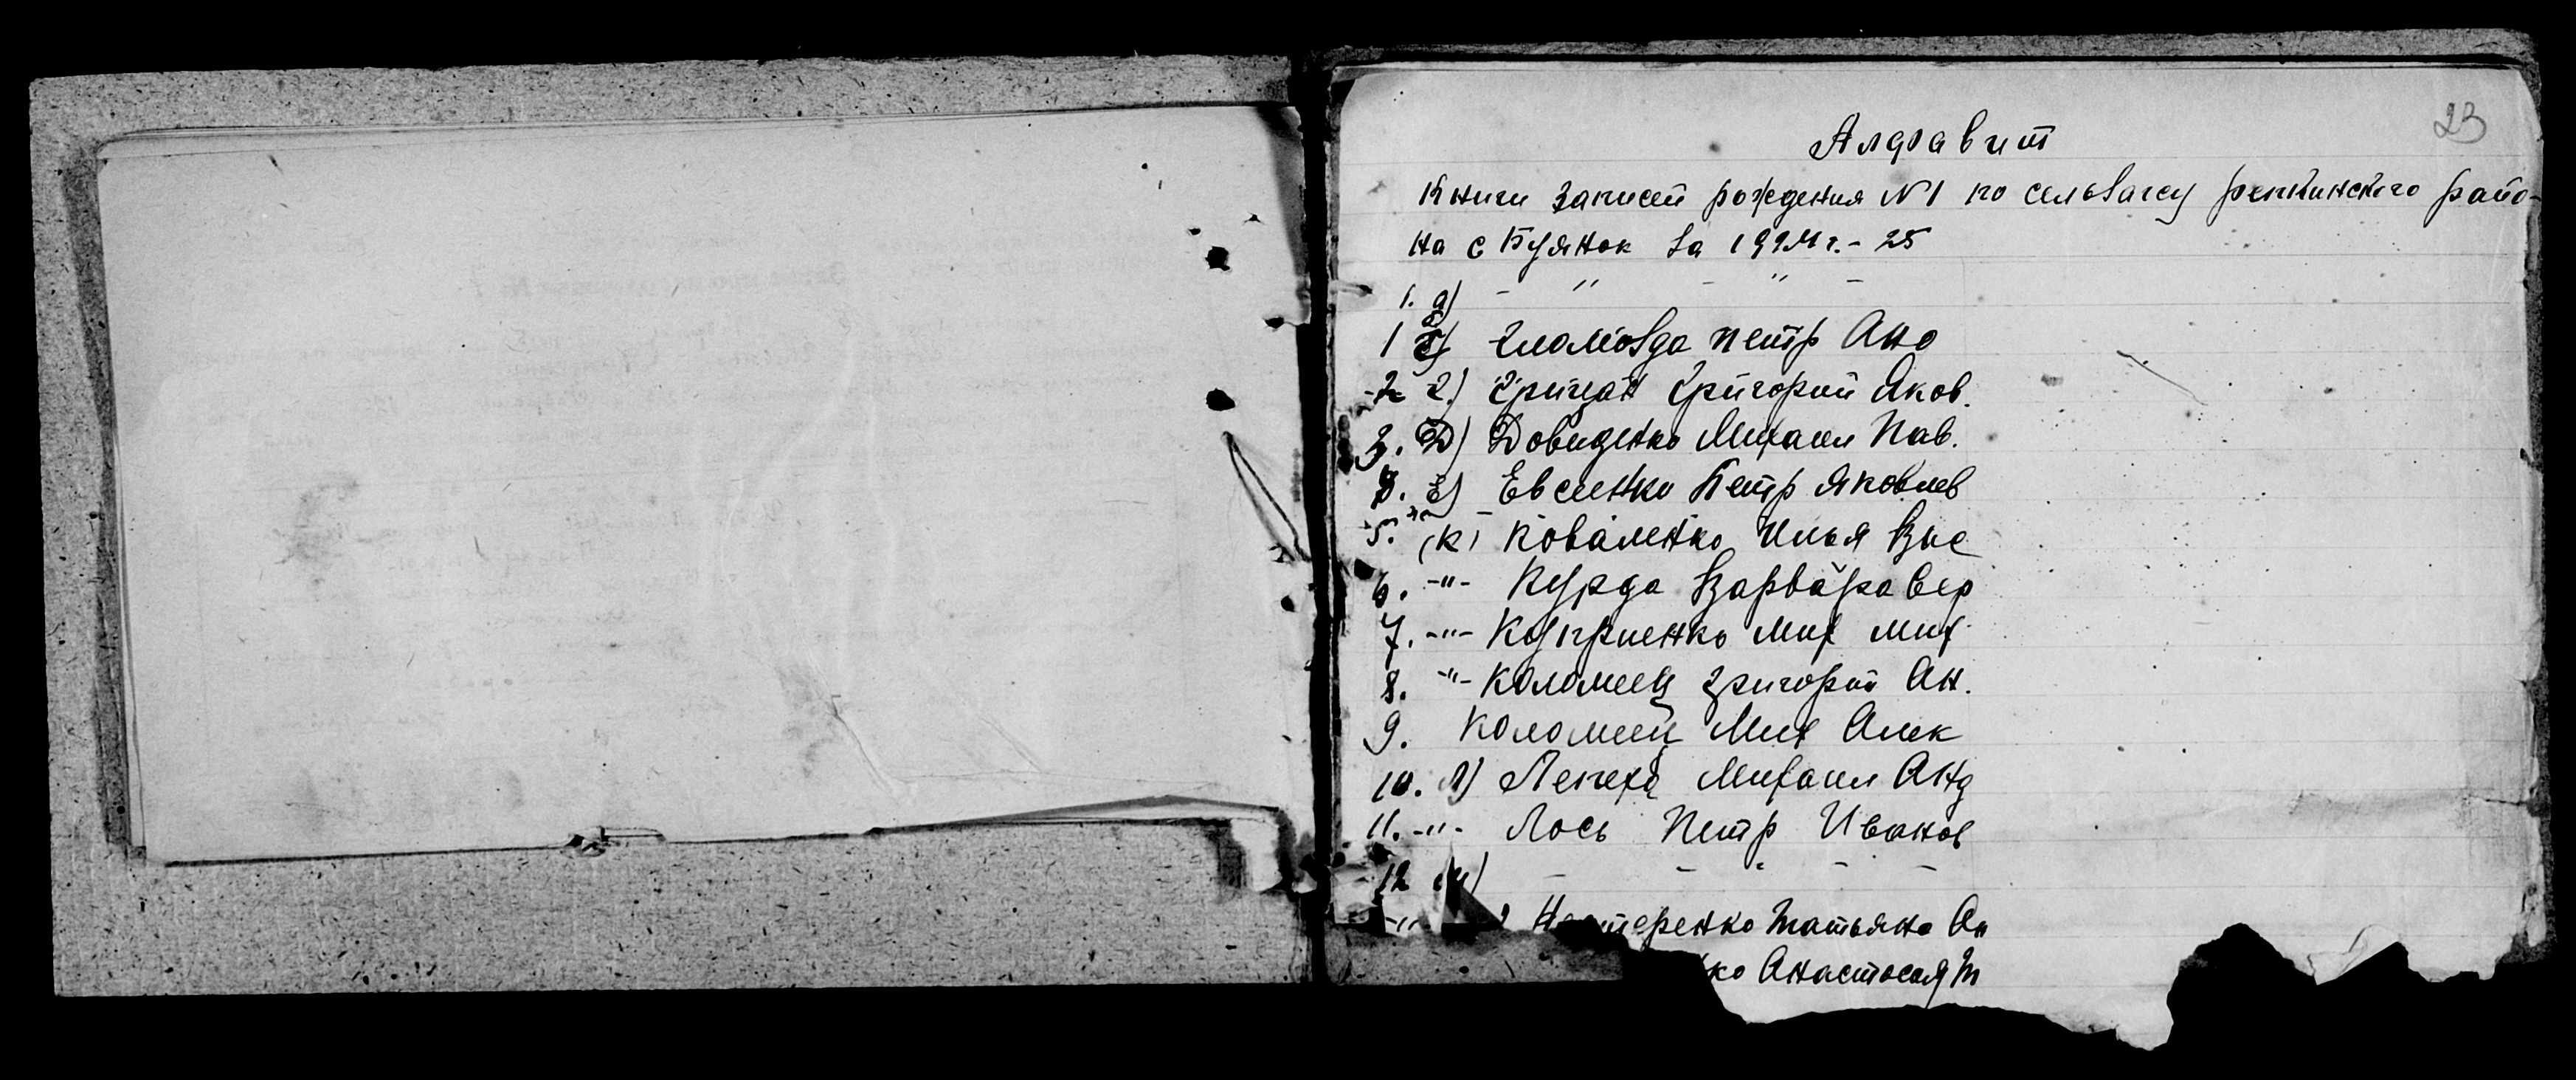 23
Алфавит
Книги записей рождения №1 по сельзагсу репкинского райо-
на с Буянок за 1924 г. - 25
1. а) - " - " -
1 г) Гламозда петр Ано
2 г) Грицан Григорий Яков.
3. Д) Довиденко Михаил Пав.
Е) Евсеенко Петр Яковлев
5. (К) Коваленко Илья Вас
6. -"- Курда Варвара
7. -"- Куприенко Мих Мих
8. -"- Коломеец Григорий Ан.
9. Коломеец Мих Алек
10. Л) Лепеха Михаил Анд
11. -"- Лось Петр Иванов
12 м) - - " - -
-"- теренко Татьяна Ан
ко Анастосия Т